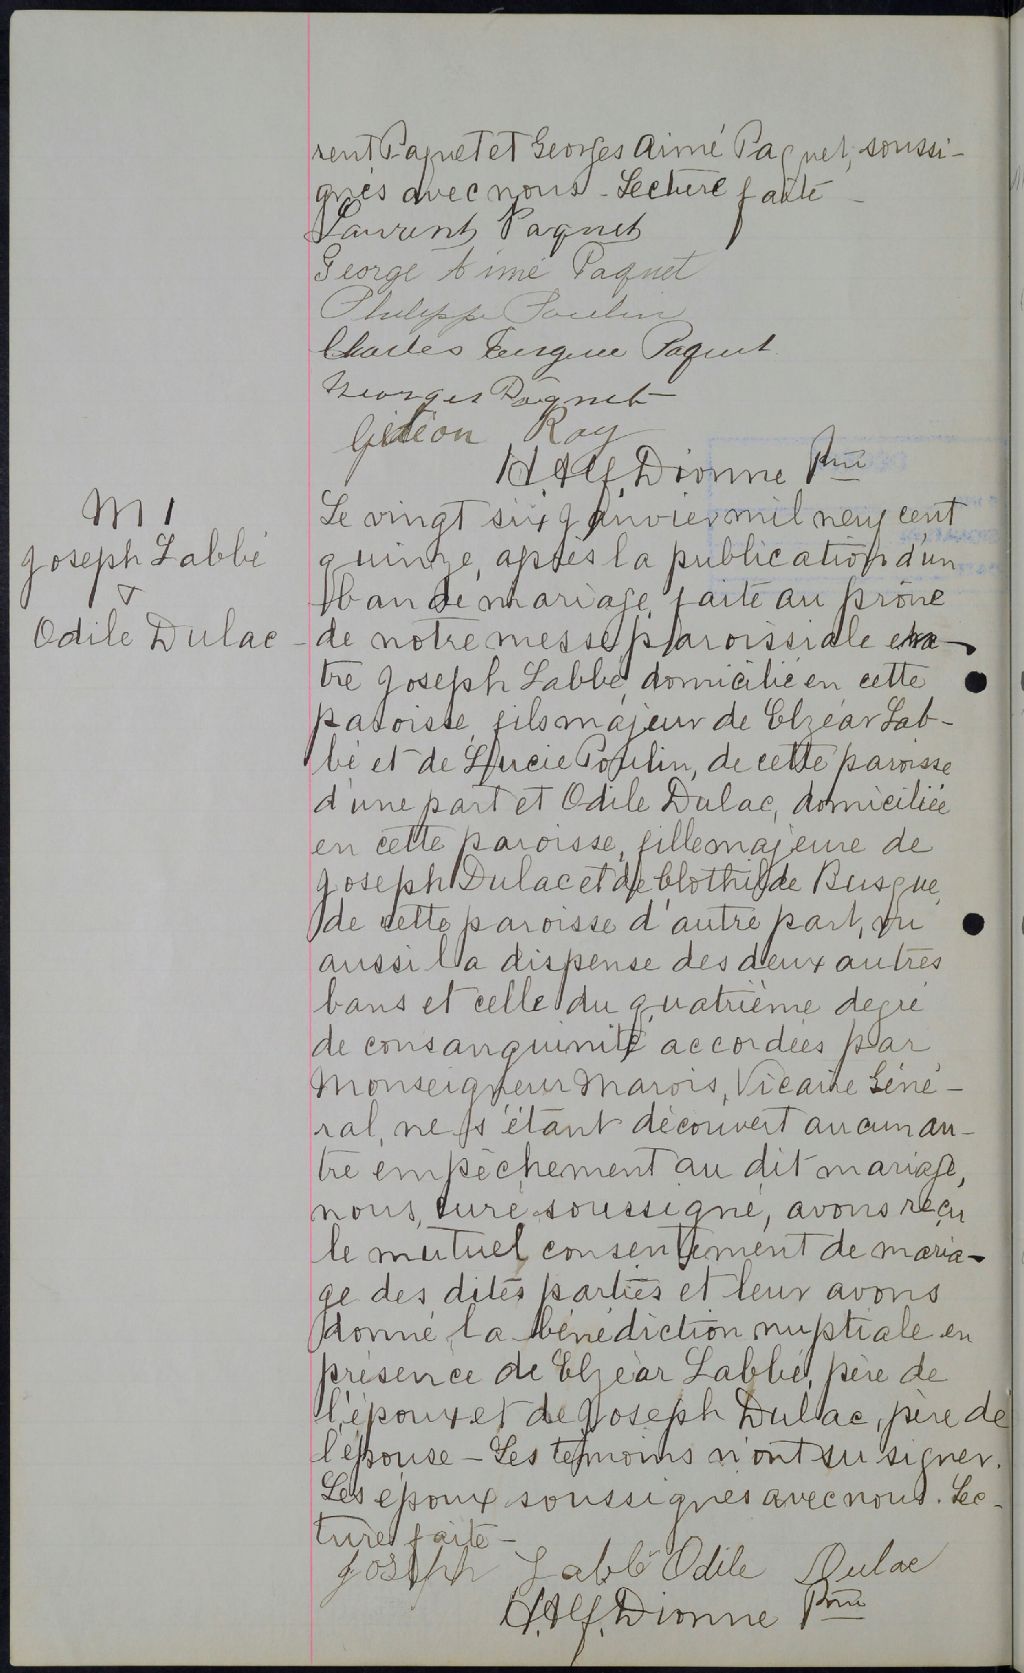 rent Paquet et Georges Aimé Paquet, soussi-
gnés avec nous - Lecture faite -
Laurent Paquet
George Aimé Paquet
Philippe Poulin
Charles Eugène Paquet
Georges Paquet
Gédéon Roy
H. Alf. Dionne Ptre
M 1
Joseph Labbé
&
Odile Dulac -
Le vingt six janvier mil neuf cent
quinze, après la publication d'un
ban de mariage, faite au prône
de notre messe paroissiale en-
tre Joseph Labbé, domicilié en cette
paroisse, fils majeur de Elzéar Lab-
bé et de Lucie Poulin, de cette paroisse
d'une part et Odile Dulac, domiciliée
en cette paroisse, fille majeure de
Joseph Dulac et de Clothilde Busque,
de cette paroisse d'autre part, vu
aussi la dispense des deux autres
bans et celle du quatrième degré
de consanguinité accordées par
Monseigneur Marois, Vicaire Géné-
ral, ne s'étant découvert aucun au-
tre empêchement au dit mariage,
nous, curé soussigné, avons reçu
le mutuel consentement de maria-
ge des dites parties et leur avons
donné la bénédiction nuptiale en
présence de Elzéar Labbé, père de
l'époux et de Joseph Dulac, père de
l'épouse - Les témoins n'ont su signer.
Les époux soussignés avec nous. Lec-
ture faite -
Joseph Labbé Odile Dulac
H. Alf. Dionne Ptre